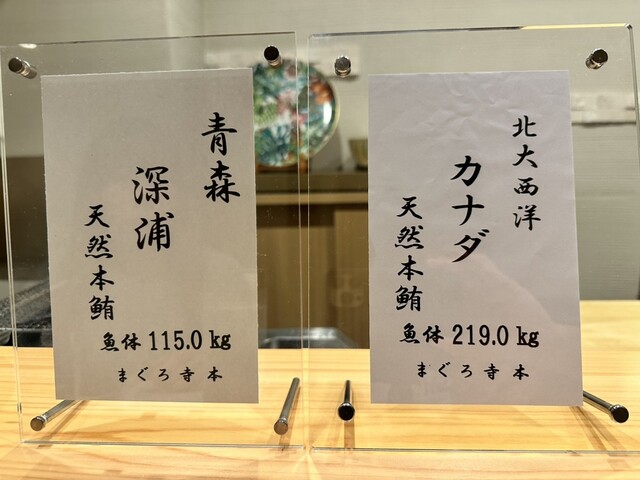 青森
深浦
天然本鮪
魚体 115.0 kg
まぐろ寺本
北大西洋
カナダ
天然本鮪
魚体 219.0 kg
まぐろ寺本